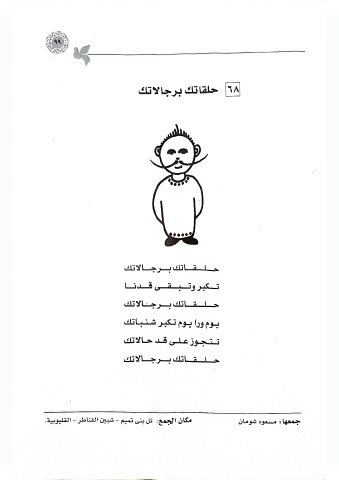 ٩٩
٦٨ حلقاتك برجالاتك
حلقاتك برجالاتك
تكبر وتبقى قدنا
حلقاتك برجالاتك
يوم ورا يوم تكبر شنباتك
تتجوز على قد حالاتك
حلقاتك برجالاتك
جمعها: مسعود شومان مكان الجمع: تل بنى تميم - شبين القناطر - القليوبية.